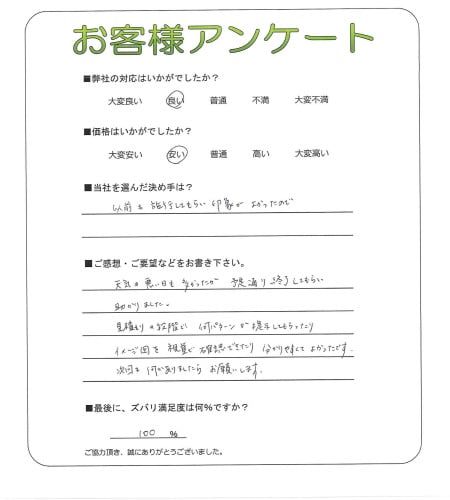 お客様アンケート
■弊社の対応はいかがでしたか？
大変良い 良い 普通 不満 大変不満
■価格はいかがでしたか？
大変安い 安い 普通 高い 大変高い
■当社を選んだ決め手は？
以前も施行してもらい印象がよかったので
■ご感想・ご要望などをお書き下さい。
天気の悪い日も多かったが 予定通り終了してもらい
助かりました。
見積もりの段階で 何パターンか提示してもらったり
イメージ図を視覚で確認できたり 分かりやすくてよかったです。
次回も何かありましたらお願いします。
■最後に、ズバリ満足度は何％ですか？
100 %
ご協力頂き、誠にありがとうございました。